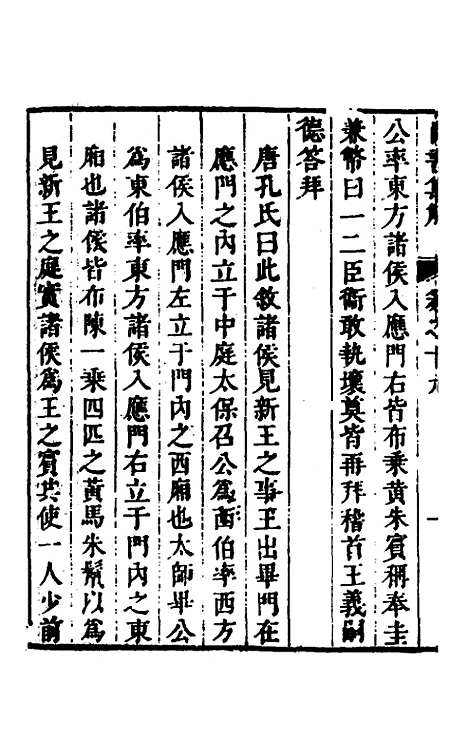 尚書集解　卷之十九　一
公率東方諸侯入應門右皆布乘黄朱賓稱奉圭
兼幣曰一二臣衞敢執壤奠皆再拜稽首王義嗣
德答拜
唐孔氏曰此敘諸侯見新王之事王出畢門在
應門之內立于中庭太保召公爲西伯率西方
諸侯入應門左立于門內之西廂也太師畢公
爲東伯率東方諸侯入應門右立于門內之東
廂也諸侯皆布陳一乘四匹之黃馬朱鬛以爲
見新王之庭實諸侯爲王之賓共使一人少前